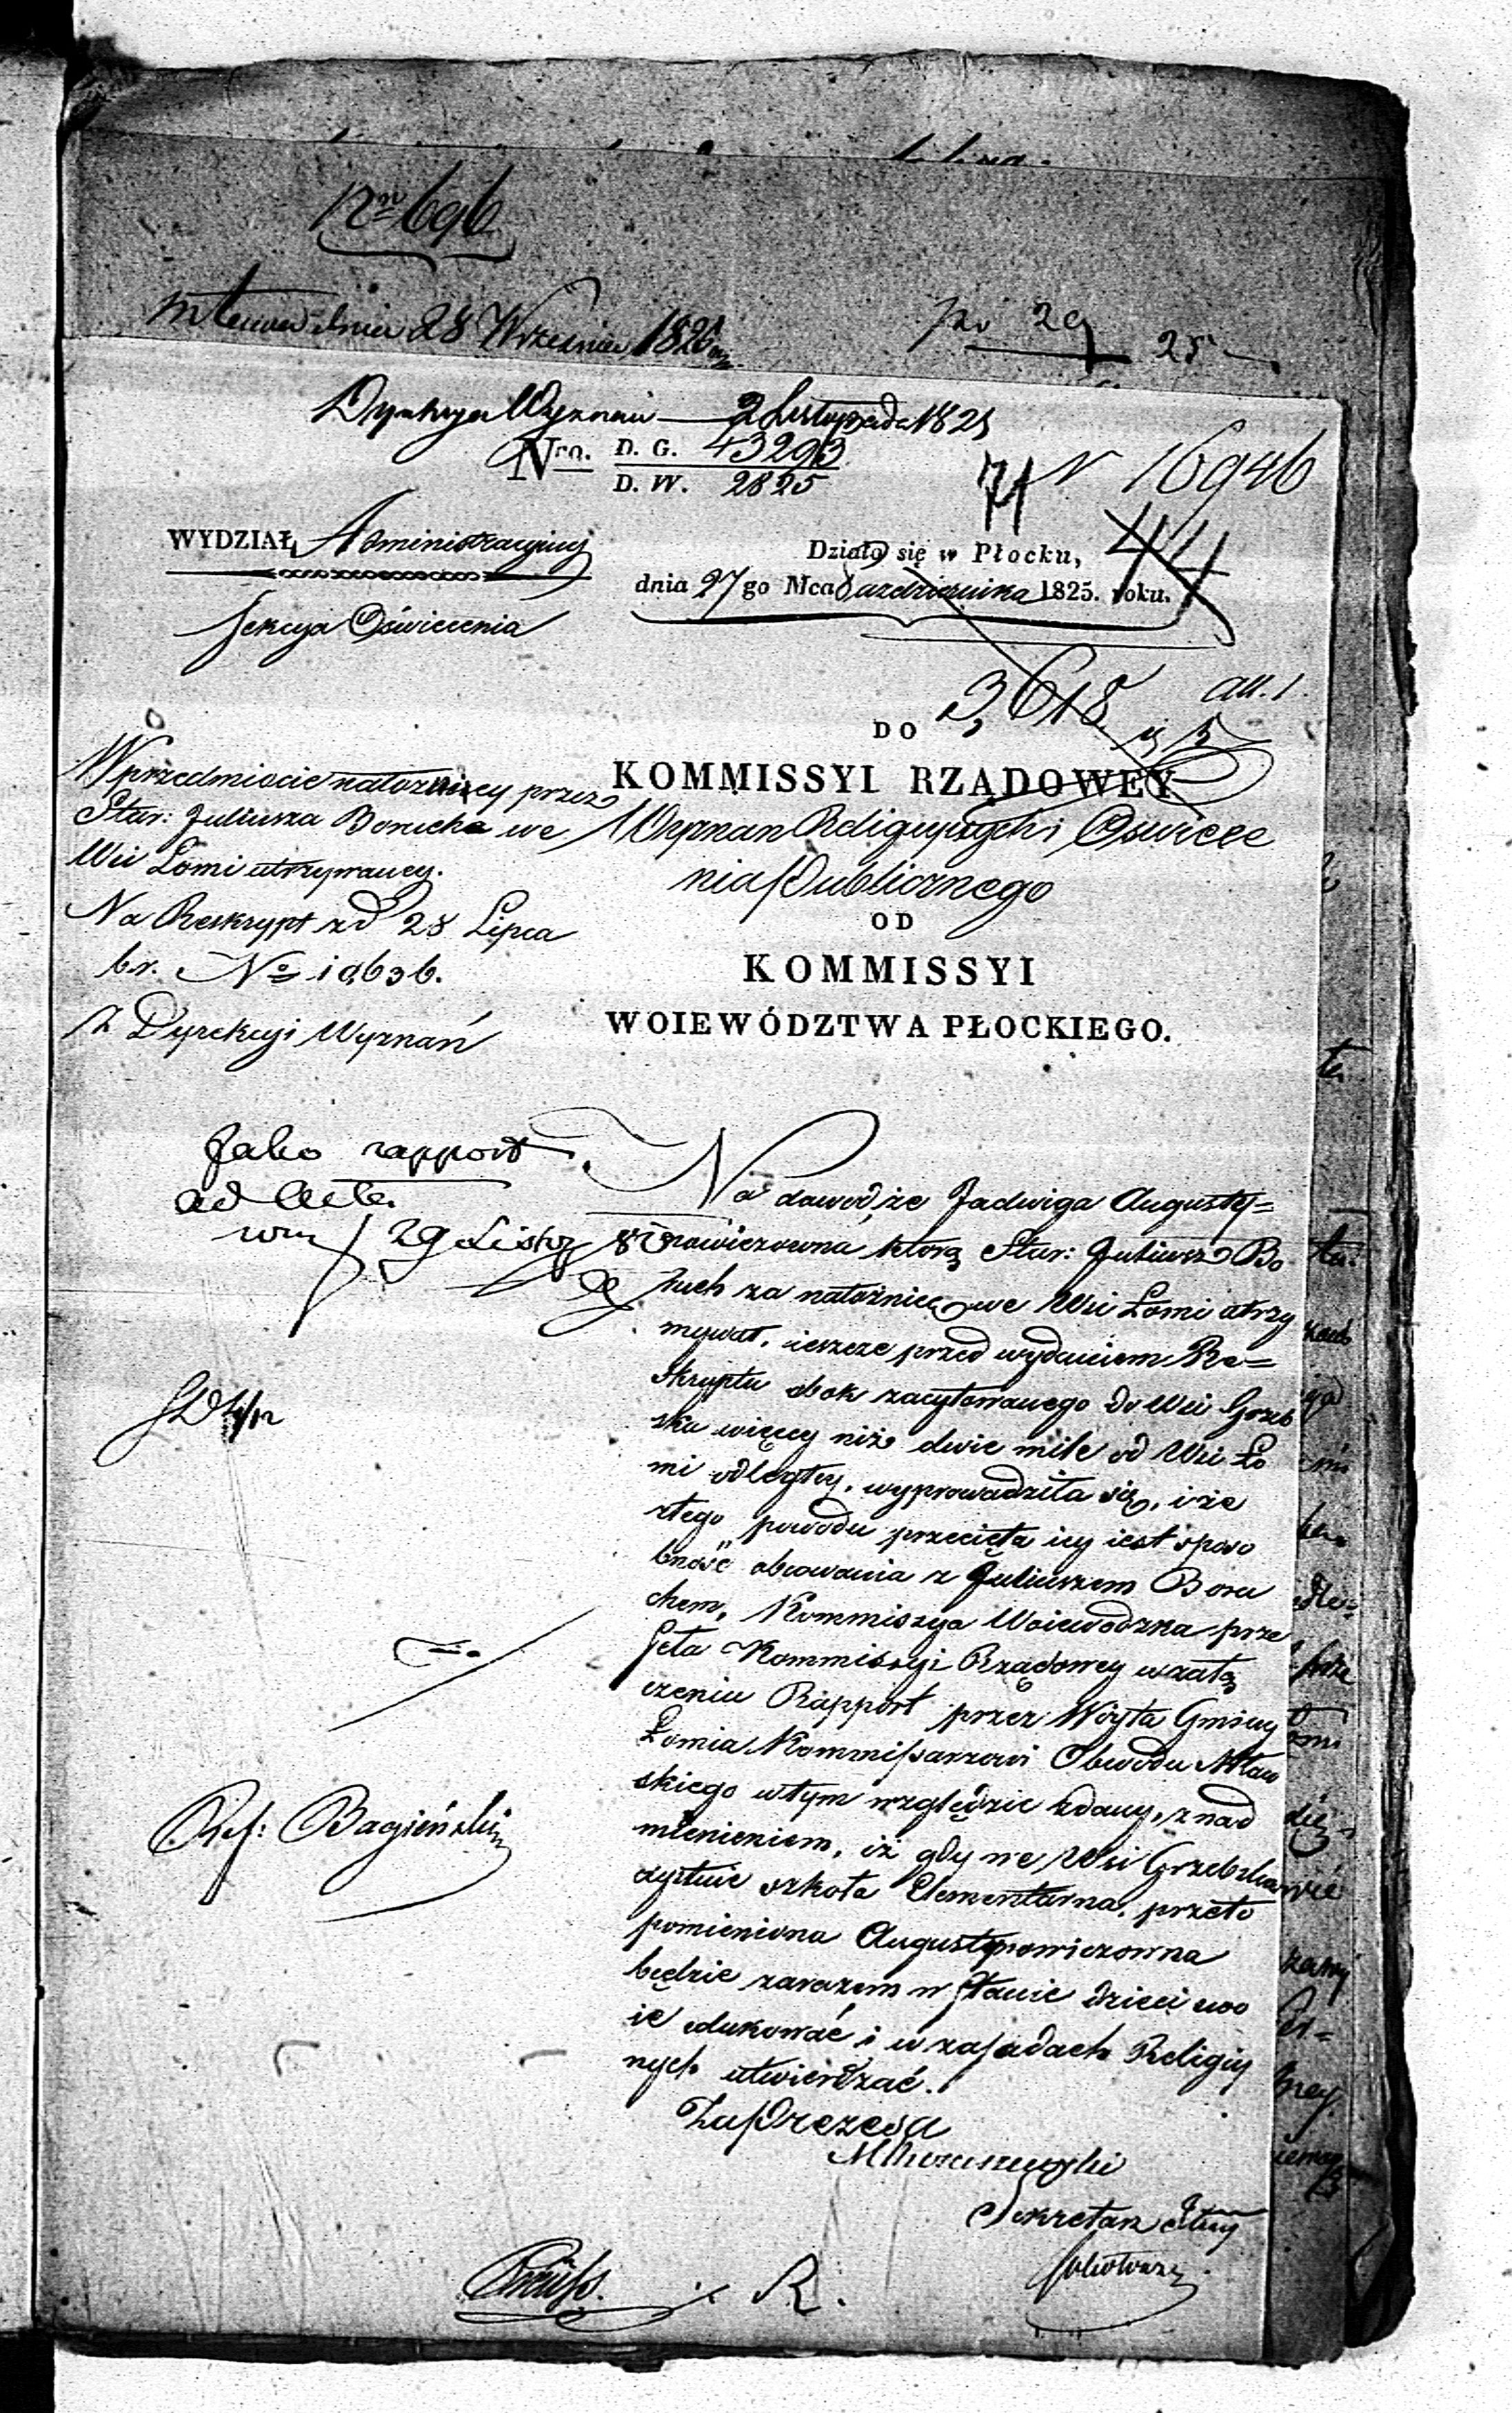 Nro 696
28 Września 1825
29 25
Dyrekcya Wyznań — 2 Listopada 1825
Nro. D. G. 43293
D. W. 2825
71 N 16946
WYDZIAŁ Administracyiny
Działo się w Płocku, 44
dnia 27 go Mca Października 1825. roku.
Sekcya Oświecenia
3,618 all. 1.
DO
KOMMISSYI RZĄDOWEY
Wyznań Religiynych i Oświece
nia Publicznego
OD
KOMMISSYI
WOIEWÓDZTWA PŁOCKIEGO.
W przedmiocie nałożnicy przez
Star: Juliusza Borucha we
Wsi Łomi utrzymaney.
Na Reskrypt z d 28 Lipca
b.r. No 10636.
Z Dyrekcyi Wyznań
Jako rapport
ad Acta.
29 Listop 825
Ref: Bagieński
Na dowód, że Jadwiga Augusty=
nowiczowna, którą Star: Juliusz Bo
ruch za nałożnicę we Wsi Łomi utrzy
mywał, ieszcze przed wydaniem Re=
skryptu obok zacytowanego do Wsi Grzeb
ska więcey niż dwie mile od Wsi Ło
mi odległey, wyprowadziła się, i że
z tego powodu przecięta iey iest sposo
bność obcowania z Juliuszem Boru
chem, Kommissya Woiewodzka prze
seła Kommissyi Rządowey w załą
czeniu Rapport przez Woyta Gminy
Łomia Kommissarzowi Obwodu Mław
skiego w tym względzie zdany, z nad
mienieniem, iż gdy we Wsi Grzebsku
exystuie szkoła Elementarna, przeto
pomieniona Augustynowiczowna
będzie zarazem w stanie dzieci swo
ie edukować i w zasadach Religiy
nych utwierdzać.
Za Prezesa
Sekretarz Jlny
R.